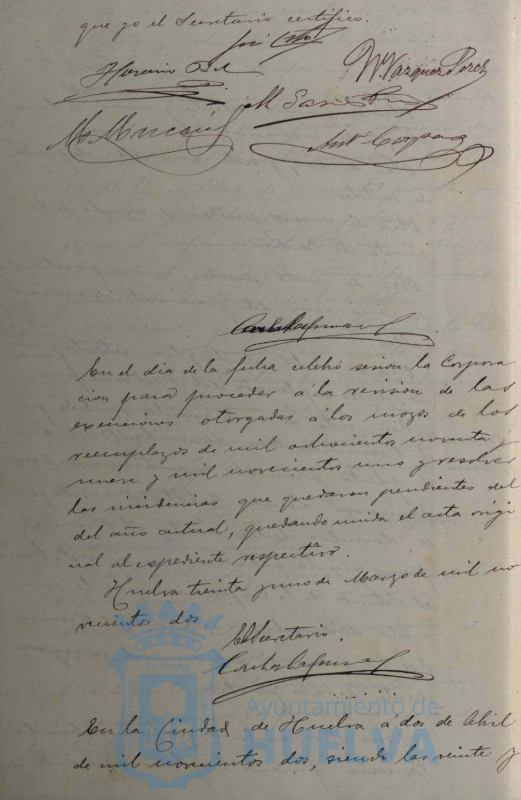 que yo el Secretario certifico.
Horacio Bel
W. Vazquez Perez
M
Ant Corpas
En el dia de la fecha celebró sesion la Corpora
cion para proceder á la revision de las
exenciones otorgadas á los mozos de los
reemplazos de mil ochocientos noventa y
nueve y mil novecientos uno y resolver
las incidencias que quedaron pendientes del
del año actual, quedando unida el acta origi
nal al expediente respectivo.
Huelva treinta y uno de Marzo de mil no
vecientos dos
El Secretario.
Ayuntamiento de
HUELVA
En la Ciudad de Huelva a dos de Abril
de mil novecientos dos, siendo las veinte y